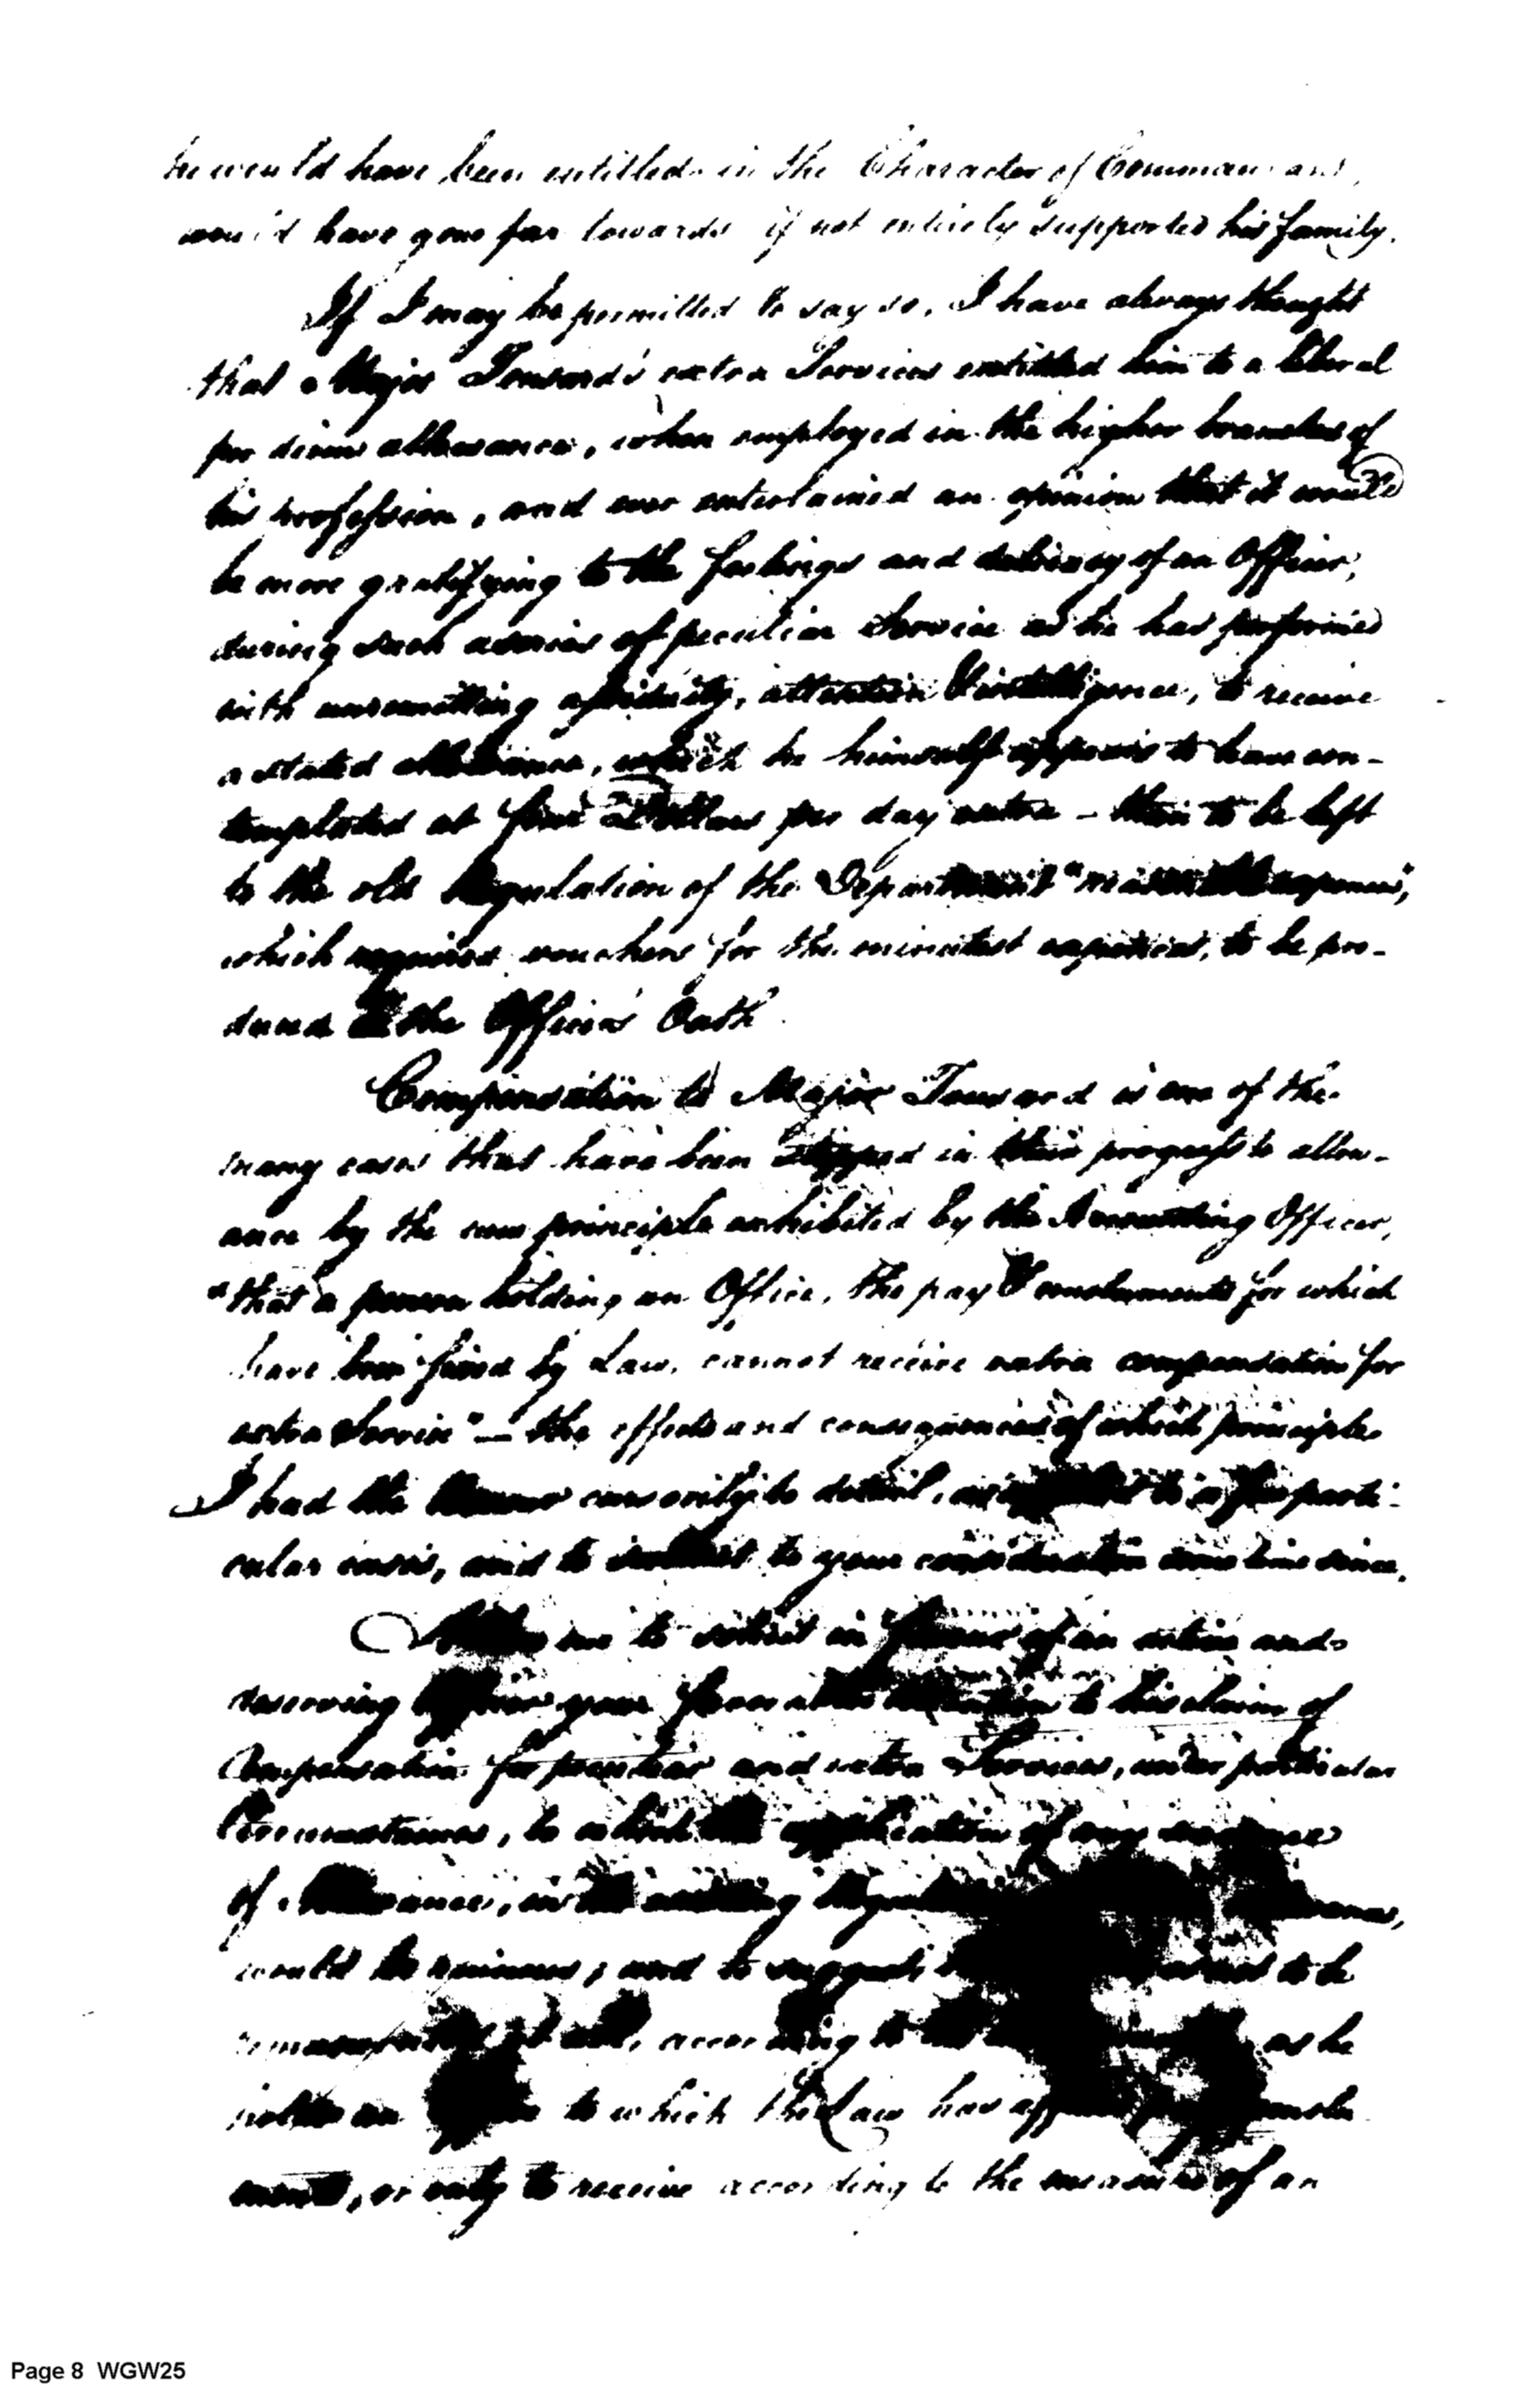 he would have been entitled in the Character of Commandant,
would have gone far towards if not entirely supported his family.
If I may be permitted to say so, I have always thought
that Major Tousard's extra Services entitled him to a liberal
per diem allowance, when employed in the higher branches of
his profession, and ever entertained an opinion that it would
be more gratifying to the feelings and delicacy of an Officer,
during such a series of peculiar Service as he has performed
with unremitting assiduity, attention & intelligence, to receive
a stated allowance, which he himself appears to have con-
templated at five Dollars per day extra - than to be left
to the old Regulation of the Department
which required vouchers for the minutest expences, to be pro-
duced the Officers Oath.
Compensation to Major Tousard is one of the
many cases that have been stopped in their progress to allow-
ance by the new principle exhibited by the Accounting Officer,
"that a person holding an Office, the pay & emoluments for which
have been fixed by Law, cannot receive extra compensation for
extra Service" - the effects and consequences of which principle
I had the honor cursorily to detail, as to a few parti-
cular cases, and to submit to your consideration some time since.
me to solicit in favour of an active and
deserving Officer your favorable attention to his claim of
Compensation for peculiar and extra Services, under particular
Circumstances, to which the application of any
of Allowance, in the existing
would be ruinous, and to suggest to be
at all, according to as he
holds an Office to which the Law has
ments, or only to receive according to the measure of an
Page 8 WGW25